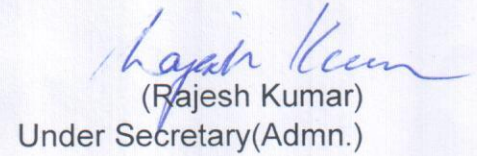 Rajesh Kumar
(Rajesh Kumar)
Under Secretary(Admn.)